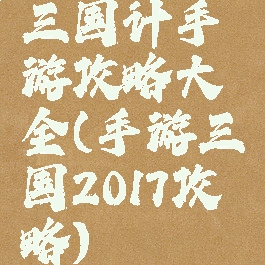 三国计手
游攻略大
全(手游三
国2017攻
略)